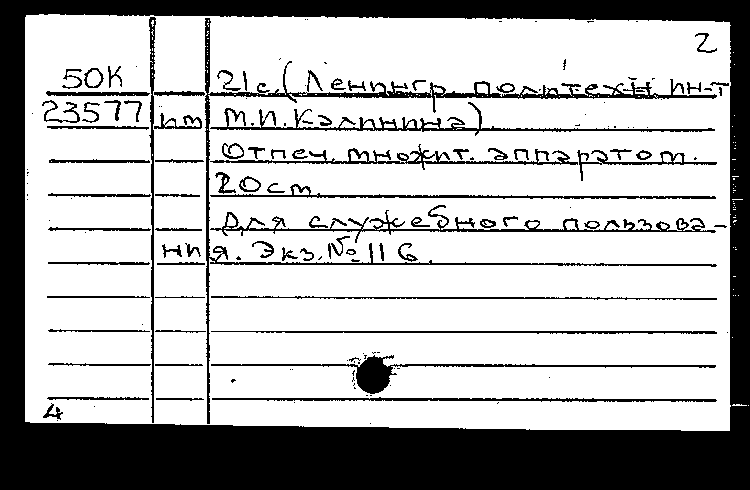 2
50К 21с. (Ленингр. политехн ин-т
23577 им М.И.Калинина)
Отпеч. множит. аппаратом.
20см.
Для служебного пользова-
ни я. Экз.№116.
4